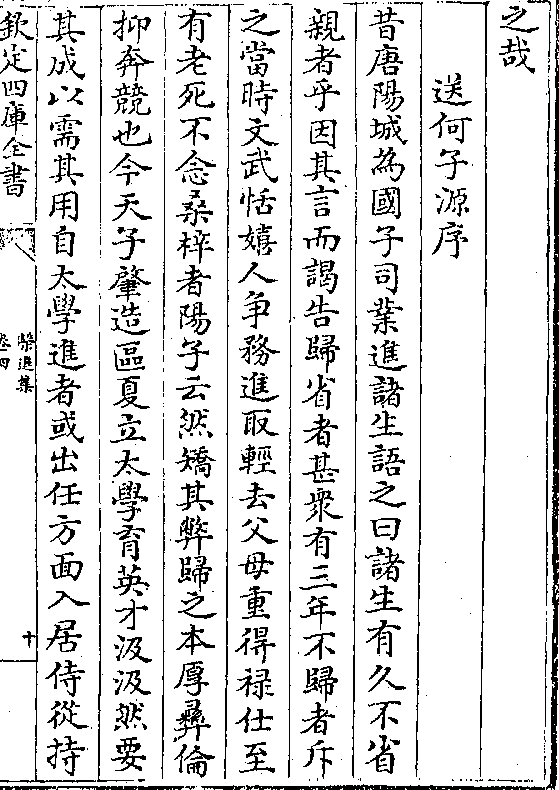 之哉
送何子源序
昔唐陽城為國子司業進諸生語之曰諸生有久不省
親者乎因其言而謁告歸省者甚衆有三年不歸者斥
之當時文武恬嬉人爭務進取輕去父母重得禄仕至
有老死不念桑梓者陽子云然矯其弊歸之本厚彞倫
抑奔競也今天子肇造區夏立太學育英才汲汲然要
其成以需其用自太學進者或出任方面入居侍從持
欽定四庫全書
卷四
十